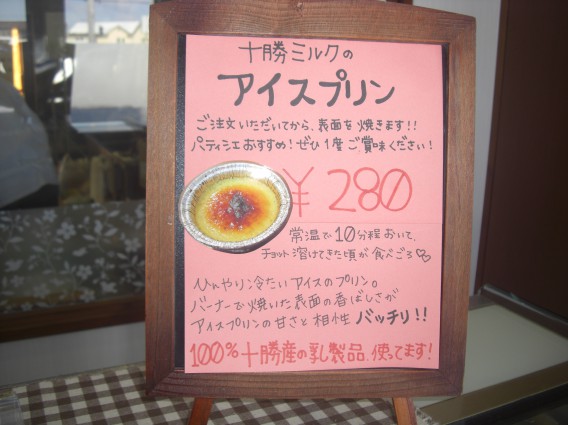 十勝ミルクの
アイスプリン
ご注文いただいてから、表面を焼きます!!
パティシエおすすめ!ぜひ1度ご賞味ください!
¥280
常温で10分程おいて、
チョット溶けてきた頃が食べごろ♡
ひんやり冷たいアイスのプリン。
バーナーで焼いた表面の香ばしさが
アイスプリンの甘さと相性バッチリ!!
100%十勝産の乳製品、使ってます!